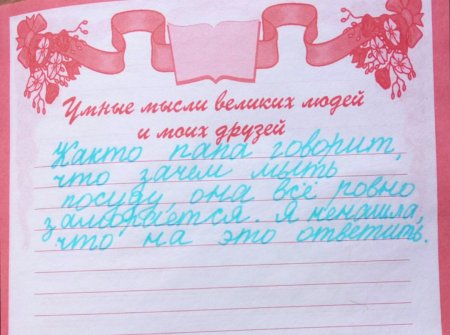 Умные мысли великих людей
и моих друзей
Както папа говорит,
что зачем мыть
посуду она всё ровно
замарается. Я ненашла,
что на это ответить.